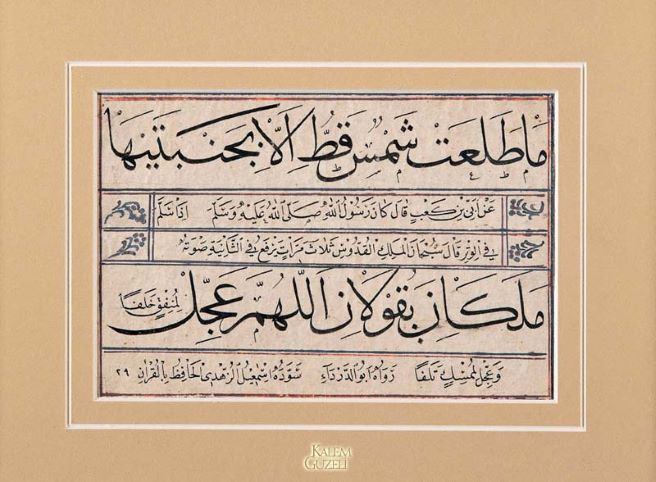 ما طلعت شمس قط الا بجنبتيها
عن ابى بن كعب قال كان رسول الله صلى الله عليه وسلم اذا سلم
فى الوتر قال سبحان الملك القدوس ثلاث مرات يرفع فى الثانية صوته
ملكان يقولان اللهم عجل لمنفق خلفا
وعجل لممسك تلفا رواه ابو الدرداء سوده اسمعيل الزهدى الحافظ بالقرآن ٢٩
KALEM
GÜZELİ